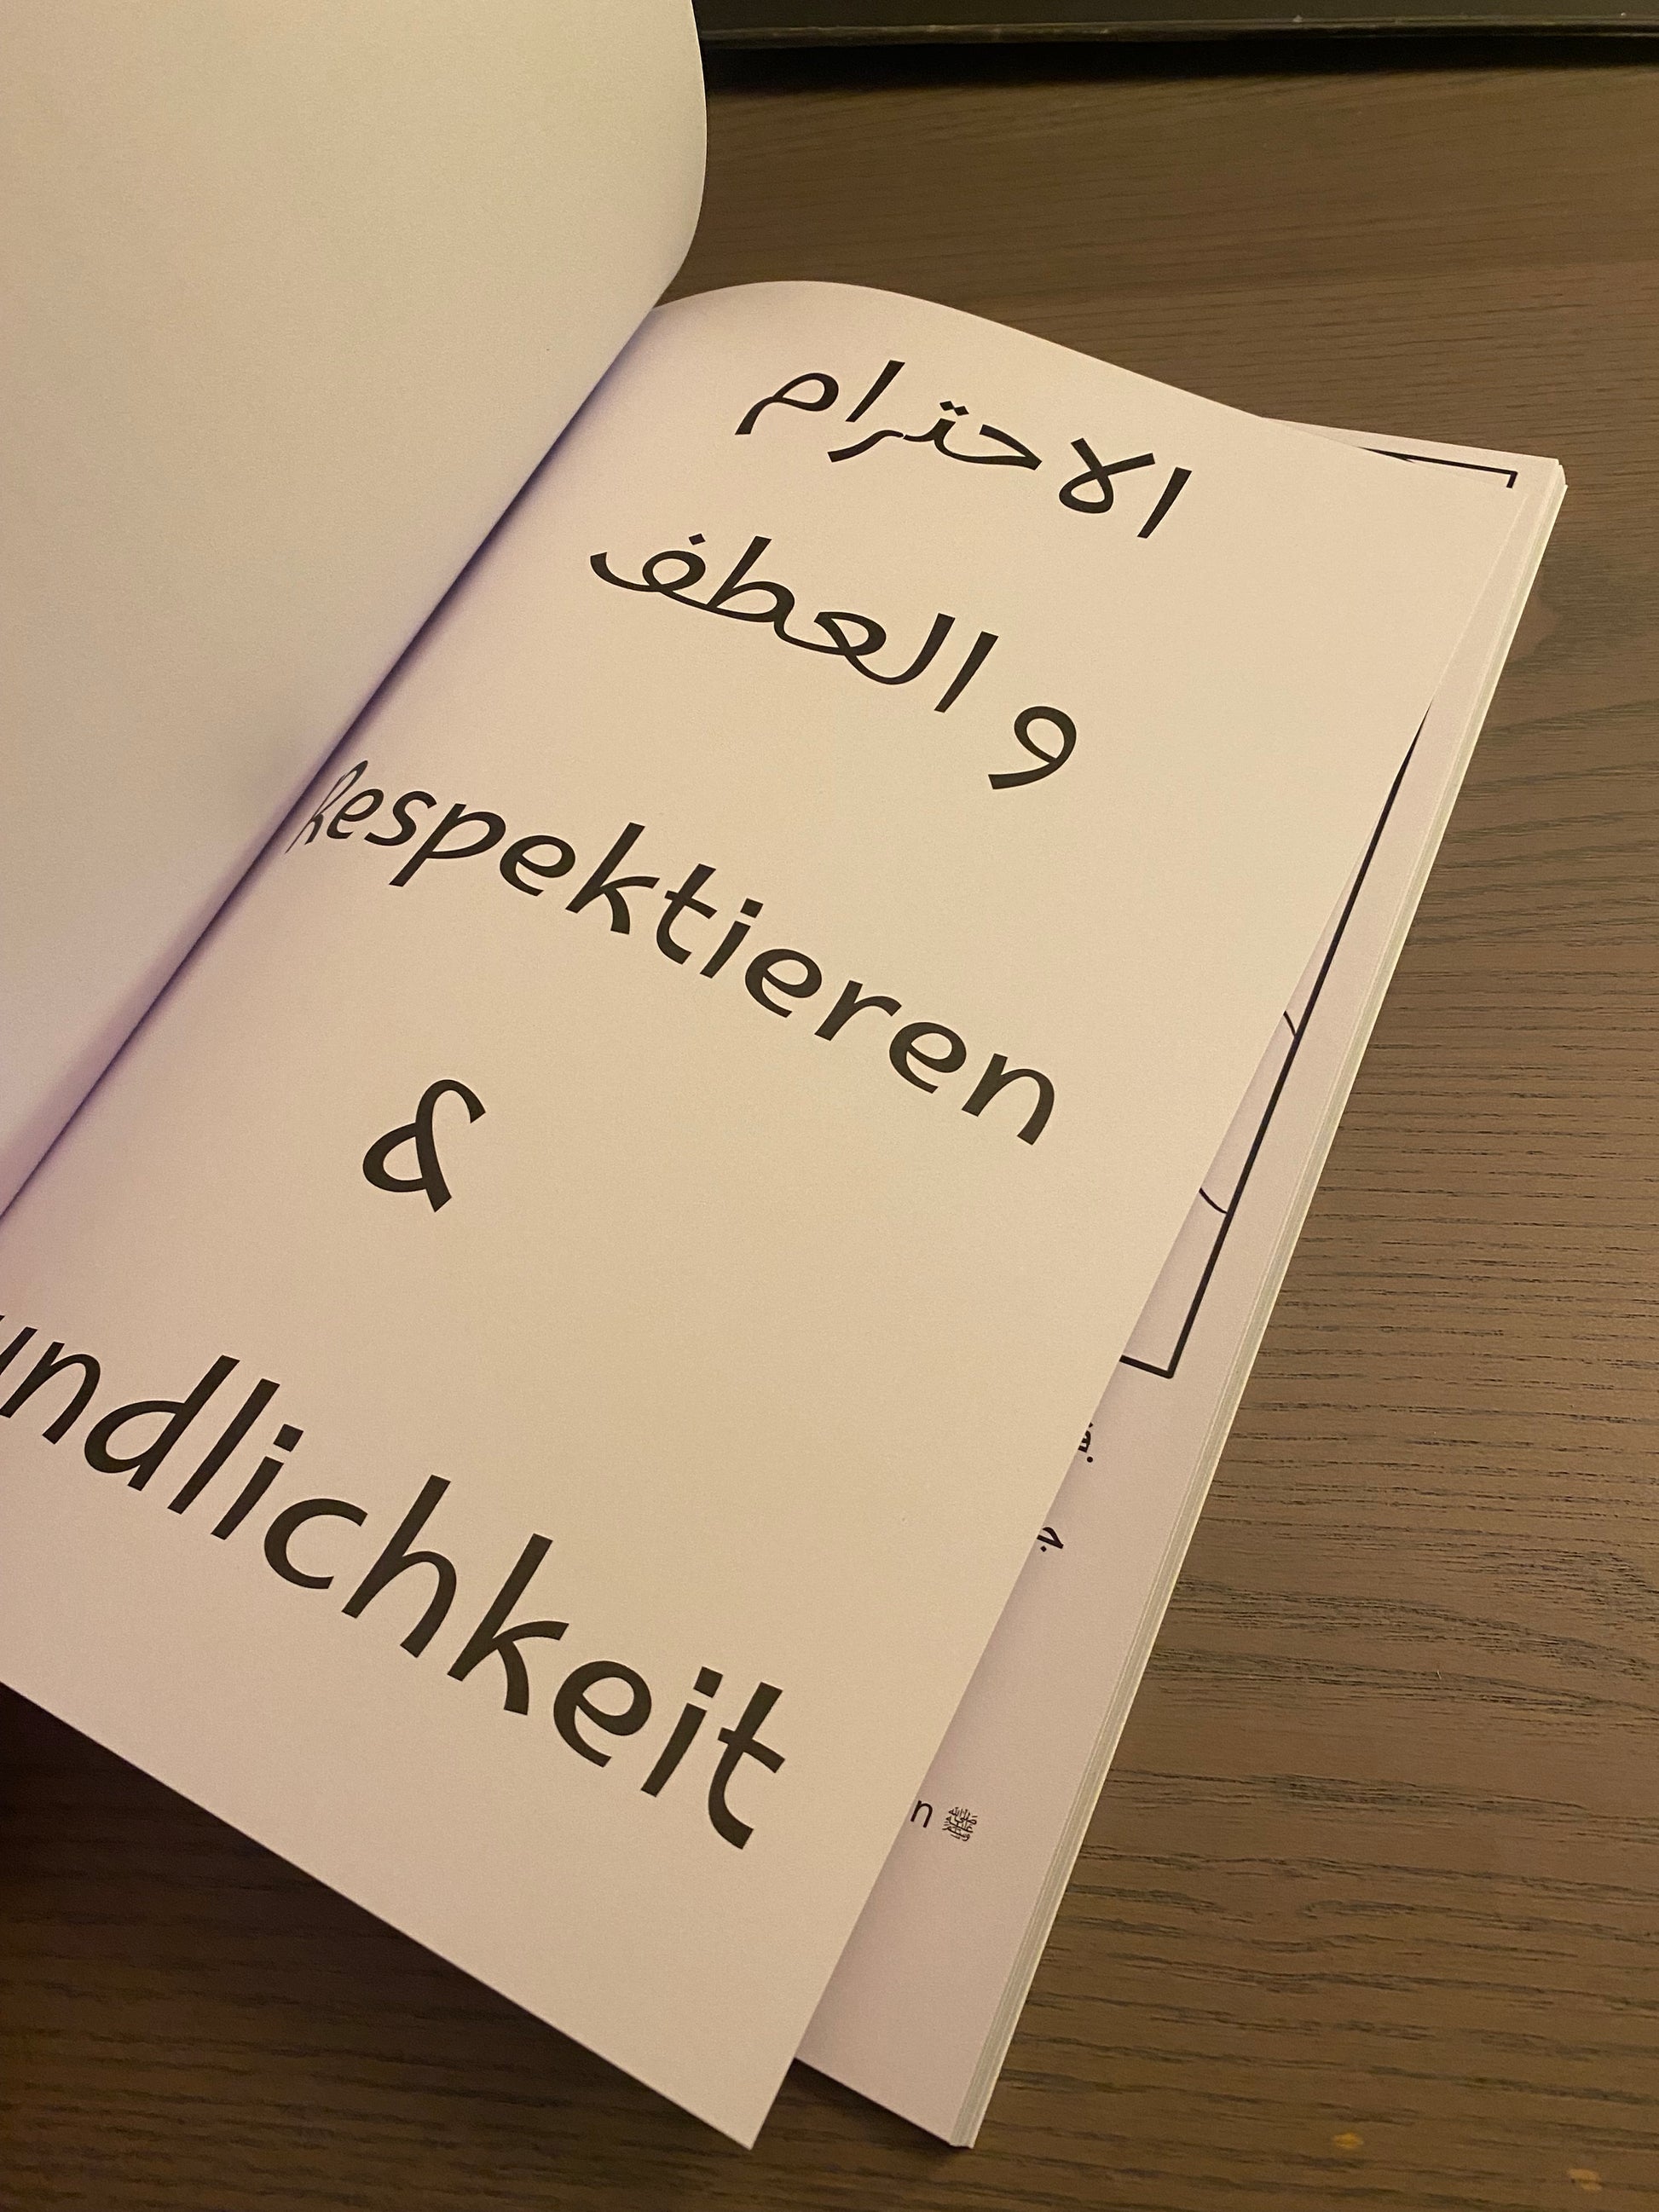 الاحترام
و العطف
Respektieren
&
undlichkeit
n ﷺ